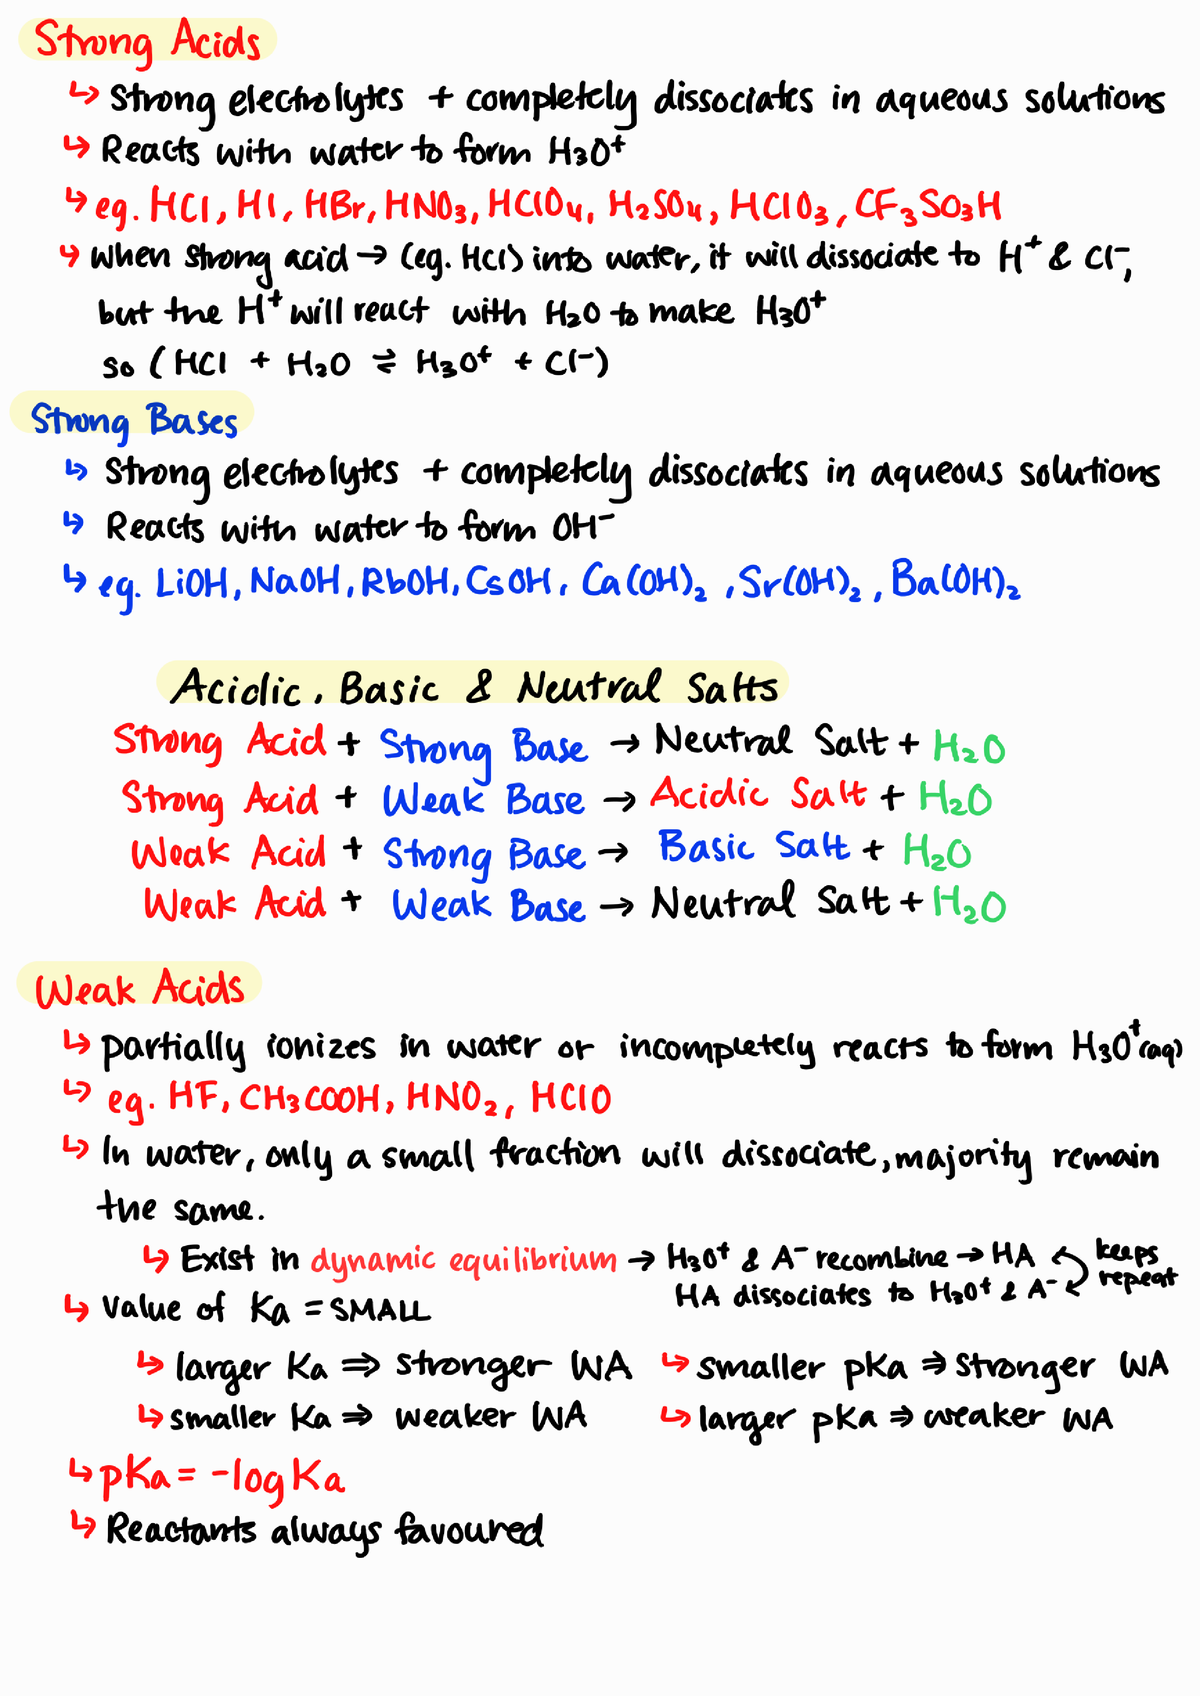 Strong Acids
↳ Strong electrolytes + completely dissociates in aqueous solutions
↳ Reacts with water to form H₃O⁺
↳ eg. HCl, HI, HBr, HNO₃, HClO₄, H₂SO₄, HClO₃, CF₃SO₃H
↳ When strong acid → (eg. HCl) into water, it will dissociate to H⁺ & Cl⁻,
but the H⁺ will react with H₂O to make H₃O⁺
so (HCl + H₂O ⇌ H₃O⁺ + Cl⁻)
Strong Bases
↳ Strong electrolytes + completely dissociates in aqueous solutions
↳ Reacts with water to form OH⁻
↳ eg. LiOH, NaOH, RbOH, CsOH, Ca(OH)₂, Sr(OH)₂, Ba(OH)₂
Acidic, Basic & Neutral Salts
Strong Acid + Strong Base → Neutral Salt + H₂O
Strong Acid + Weak Base → Acidic Salt + H₂O
Weak Acid + Strong Base → Basic Salt + H₂O
Weak Acid + Weak Base → Neutral Salt + H₂O
Weak Acids
↳ partially ionizes in water or incompletely reacts to form H₃O⁺(aq)
↳ eg. HF, CH₃COOH, HNO₂, HClO
↳ In water, only a small fraction will dissociate, majority remain
the same.
↳ Exist in dynamic equilibrium → H₃O⁺ & A⁻ recombine → HA keeps
HA dissociates to H₃O⁺ & A⁻ repeat
↳ Value of Ka = SMALL
↳ larger Ka ⇒ stronger WA ↳ smaller pKa ⇒ stronger WA
↳ smaller Ka ⇒ weaker WA ↳ larger pKa ⇒ weaker WA
↳ pKa = -log Ka
↳ Reactants always favoured